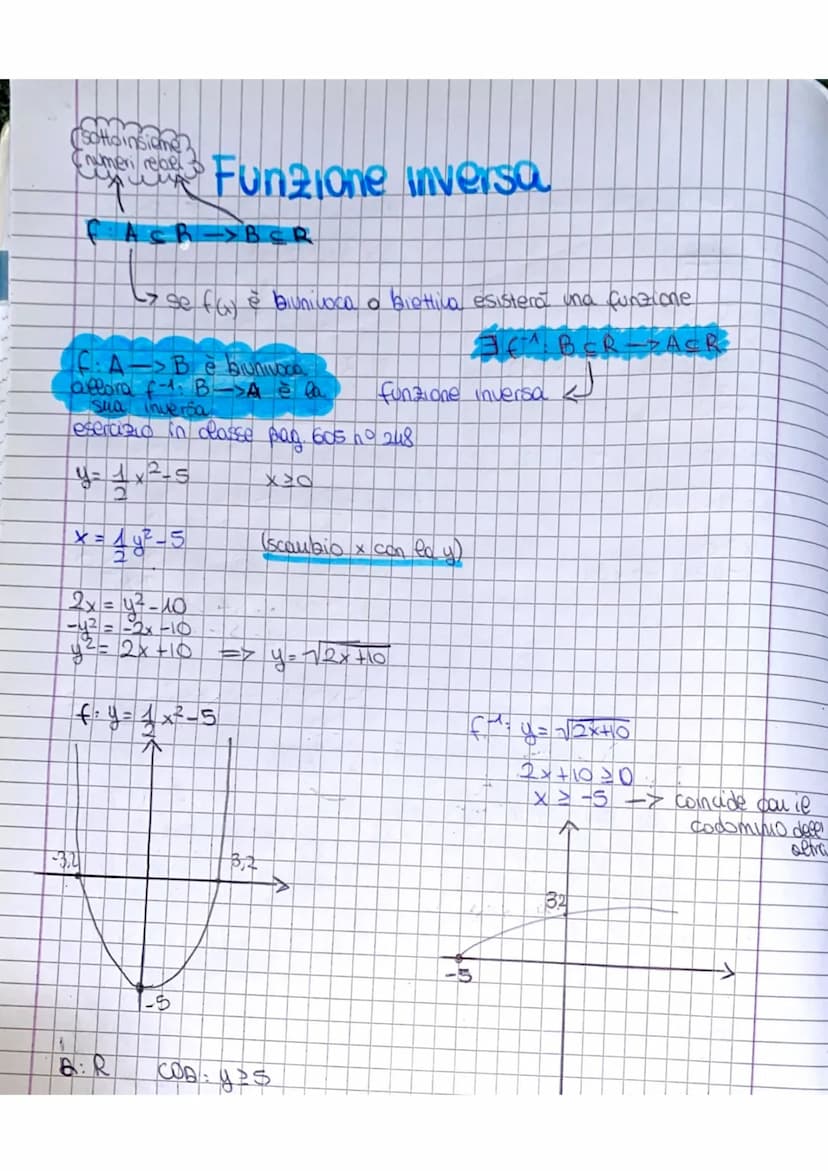 sottoinsieme
numeri reali
Funzione inversa
f: A ⊆ R –> B ⊆ R
↳ se f(x) è biunivoca o biettiva esisterà una funzione
∃ f⁻¹: B ⊆ R –> A ⊆ R
f: A –> B è biunivoca
allora f⁻¹: B –> A è la
sua inversa
funzione inversa
esercizio in classe pag. 605 n° 248
y = 1/2 x² - 5 x ≥ 0
x = 1/2 y² - 5 (scambio x con la y)
2x = y² - 10
-y² = -2x - 10
y² = 2x + 10 => y = √2x+10
f: y = 1/2 x² - 5
f⁻¹: y = √2x+10
2x + 10 ≥ 0
x ≥ -5 –> coincide con il
codominio dell'
altra
-3,2 3,2
-5
3,2
-5
D: R COD: y ≥ 5